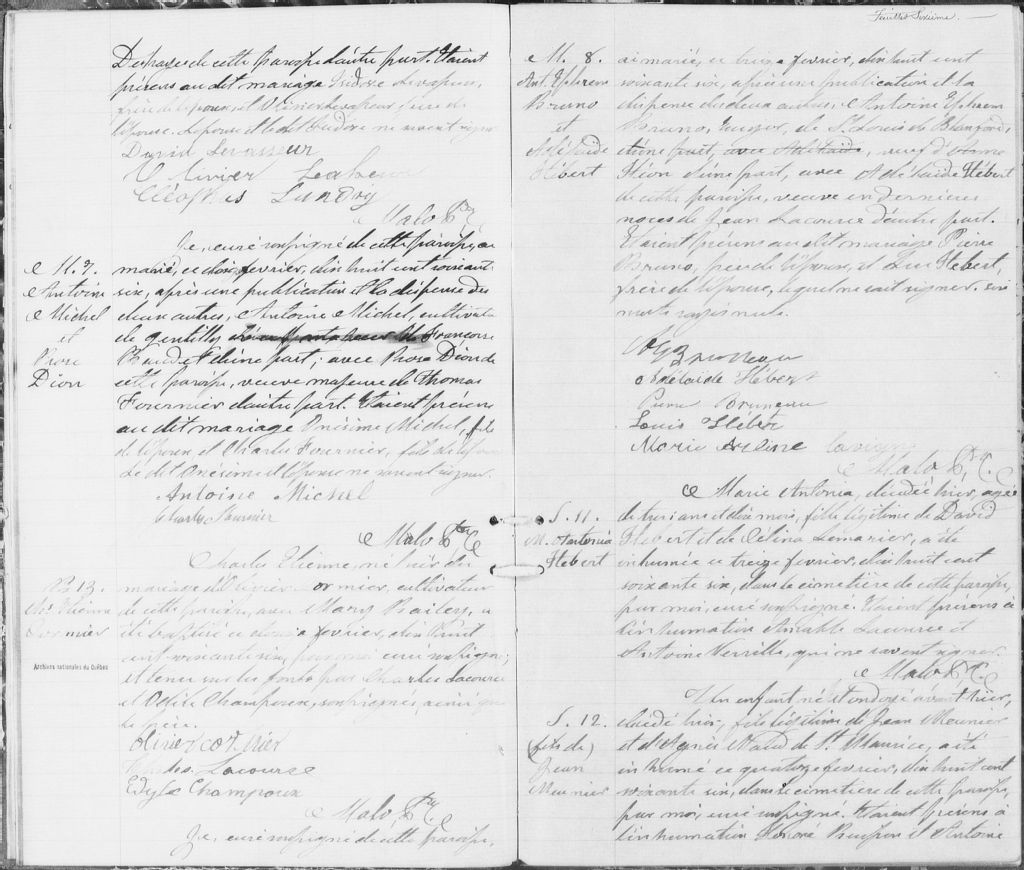 de cette paroisse d'autre part. Etaient
présens au dit mariage Isidore Levasseur,
frère de l'époux, et Olivier
l'épouse. L'épouse et le dit Isidore ne savent signer
Levasseur
Olivier
Cléophas Landry
Malo Ptre
Je, curé soussigné de cette paroisse, ai
M. 7.
Antoine
Michel
et
Dion
marié, ce février, dix huit cent soixante
six, après une publication et la dispense des
deux autres, Antoine Michel, cultivateur
de Gentilly, Françoise
d'une part; avec Dion de
cette paroisse, veuve majeure de Thomas
Fournier d'autre part. Etaient présens
au dit mariage Onésime Michel, fils
de l'époux et Charles Fournier, fils de l'épouse
Le dit Onésime et l'épouse ne savent signer.
Antoine Michel
Charles Fournier
Malo Ptre
Charles Etienne, né hier du
B. 13.
Chs. Etienne
Cormier
mariage d'Olivier Cormier, cultivateur
de cette paroisse, avec Mary Bailey, a
été baptisé ce février, dix huit
cent soixante six, par moi curé soussigné;
et tenu sur les fonts par Charles Lacourse
et Champoux, soussignés, ainsi que
le père.
Olivier Cormier
Charles Lacourse
Champoux
Malo Ptre
Je, curé soussigné de cette paroisse,
Archives nationales du Québec
Feuillet Sixième.
M. 8.
Ant. Ephrem
Bruno
et
Adélaïde
Hébert
ai marié, ce treize février, dix huit cent
soixante six, après une publication et la
dispense des deux autres, Antoine Ephrem
Bruno, de St. Louis de Blandford,
d'une part, avec Adélaïde, veuf
d'une part, avec Adélaïde Hébert
de cette paroisse, veuve en dernières
noces de Jean Lacourse d'autre part.
Etaient présens au dit mariage Pierre
Bruno, frère de l'époux, et Luc Hébert,
frère de l'épouse, lequel ne sait signer.
mots rayés nuls.
Bruneau
Adélaïde Hébert
Bruneau
Louis Hébert
Marie Arline
Malo Ptre
S. 11.
M. Antonia
Hébert
Marie Antonia, décédée hier, agée
de trois ans et dix mois, fille légitime de David
Hébert et de Célina Lemarier, a été
inhumée ce treize février, dix huit cent
soixante six, dans le cimetière de cette paroisse,
par moi, curé soussigné. Etaient présens à
l'inhumation Amable Lacourse et
Antoine Verville, qui ne savent signer.
Malo Ptre
S. 12.
(fils de)
Jean
Meunier
Un enfant né et ondoyé avant hier,
décédé hier, fils légitime de Jean Meunier
et d'Agnès de St. Maurice, a été
inhumé ce quatorze février, dix huit cent
soixante six, dans le cimetière de cette paroisse,
par moi, curé soussigné. Etaient présens à
l'inhumation Honoré et Antoine